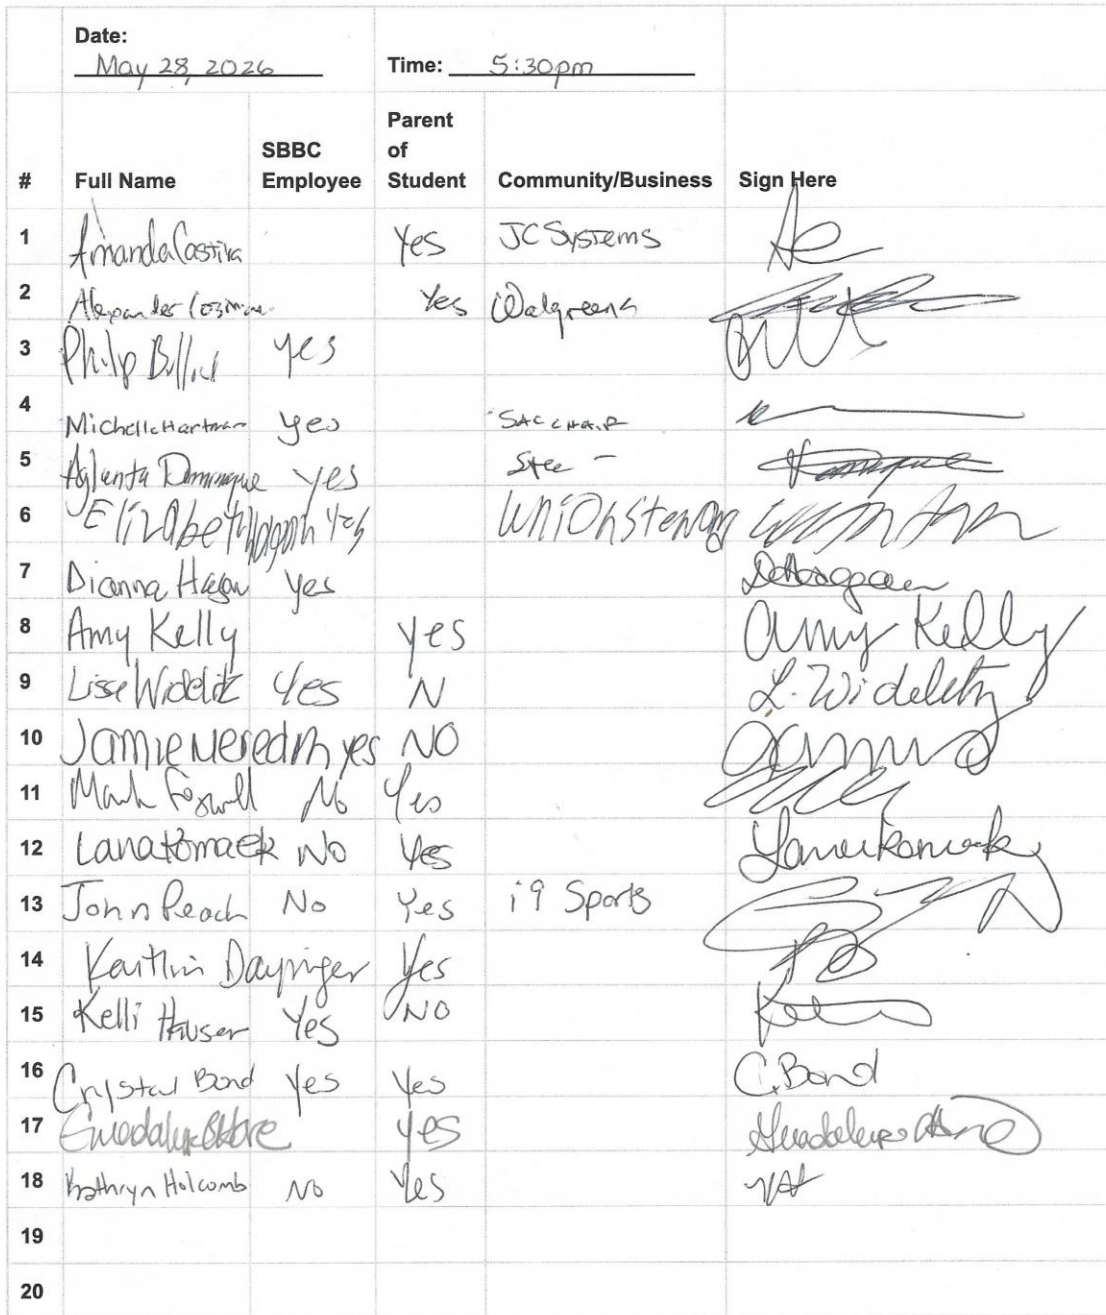 Date:
May 28, 2026 Time: 5:30pm
# Full Name SBBC Employee Parent of Student Community/Business Sign Here
1 Amanda Yes JC Systems
2 Alexander Yes Walgreens
3 Philip yes
4 Michelle Hartman yes SAC CHAIR
5 Dominique yes
6 Elizabeth Yes Union Steward
7 Dianna Hagan yes
8 Amy Kelly yes Amy Kelly
9 Lisse Widelitz Yes N L. Widelitz
10 Jamie Meredith yes NO
11 Mark No Yes
12 Lana No Yes
13 John Peach No Yes i9 Sports
14 Kaitlin Dayringer Yes
15 Kelli Hauser Yes NO
16 Crystal Bond Yes Yes C. Bond
17 Guadalupe yes Guadalupe
18 Kathryn Holcomb No Yes
19
20